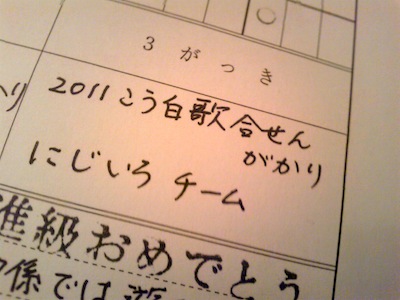 3がっき
2011こう白歌合せん
がかり
にじいろ チーム
進級おめでとう
係では